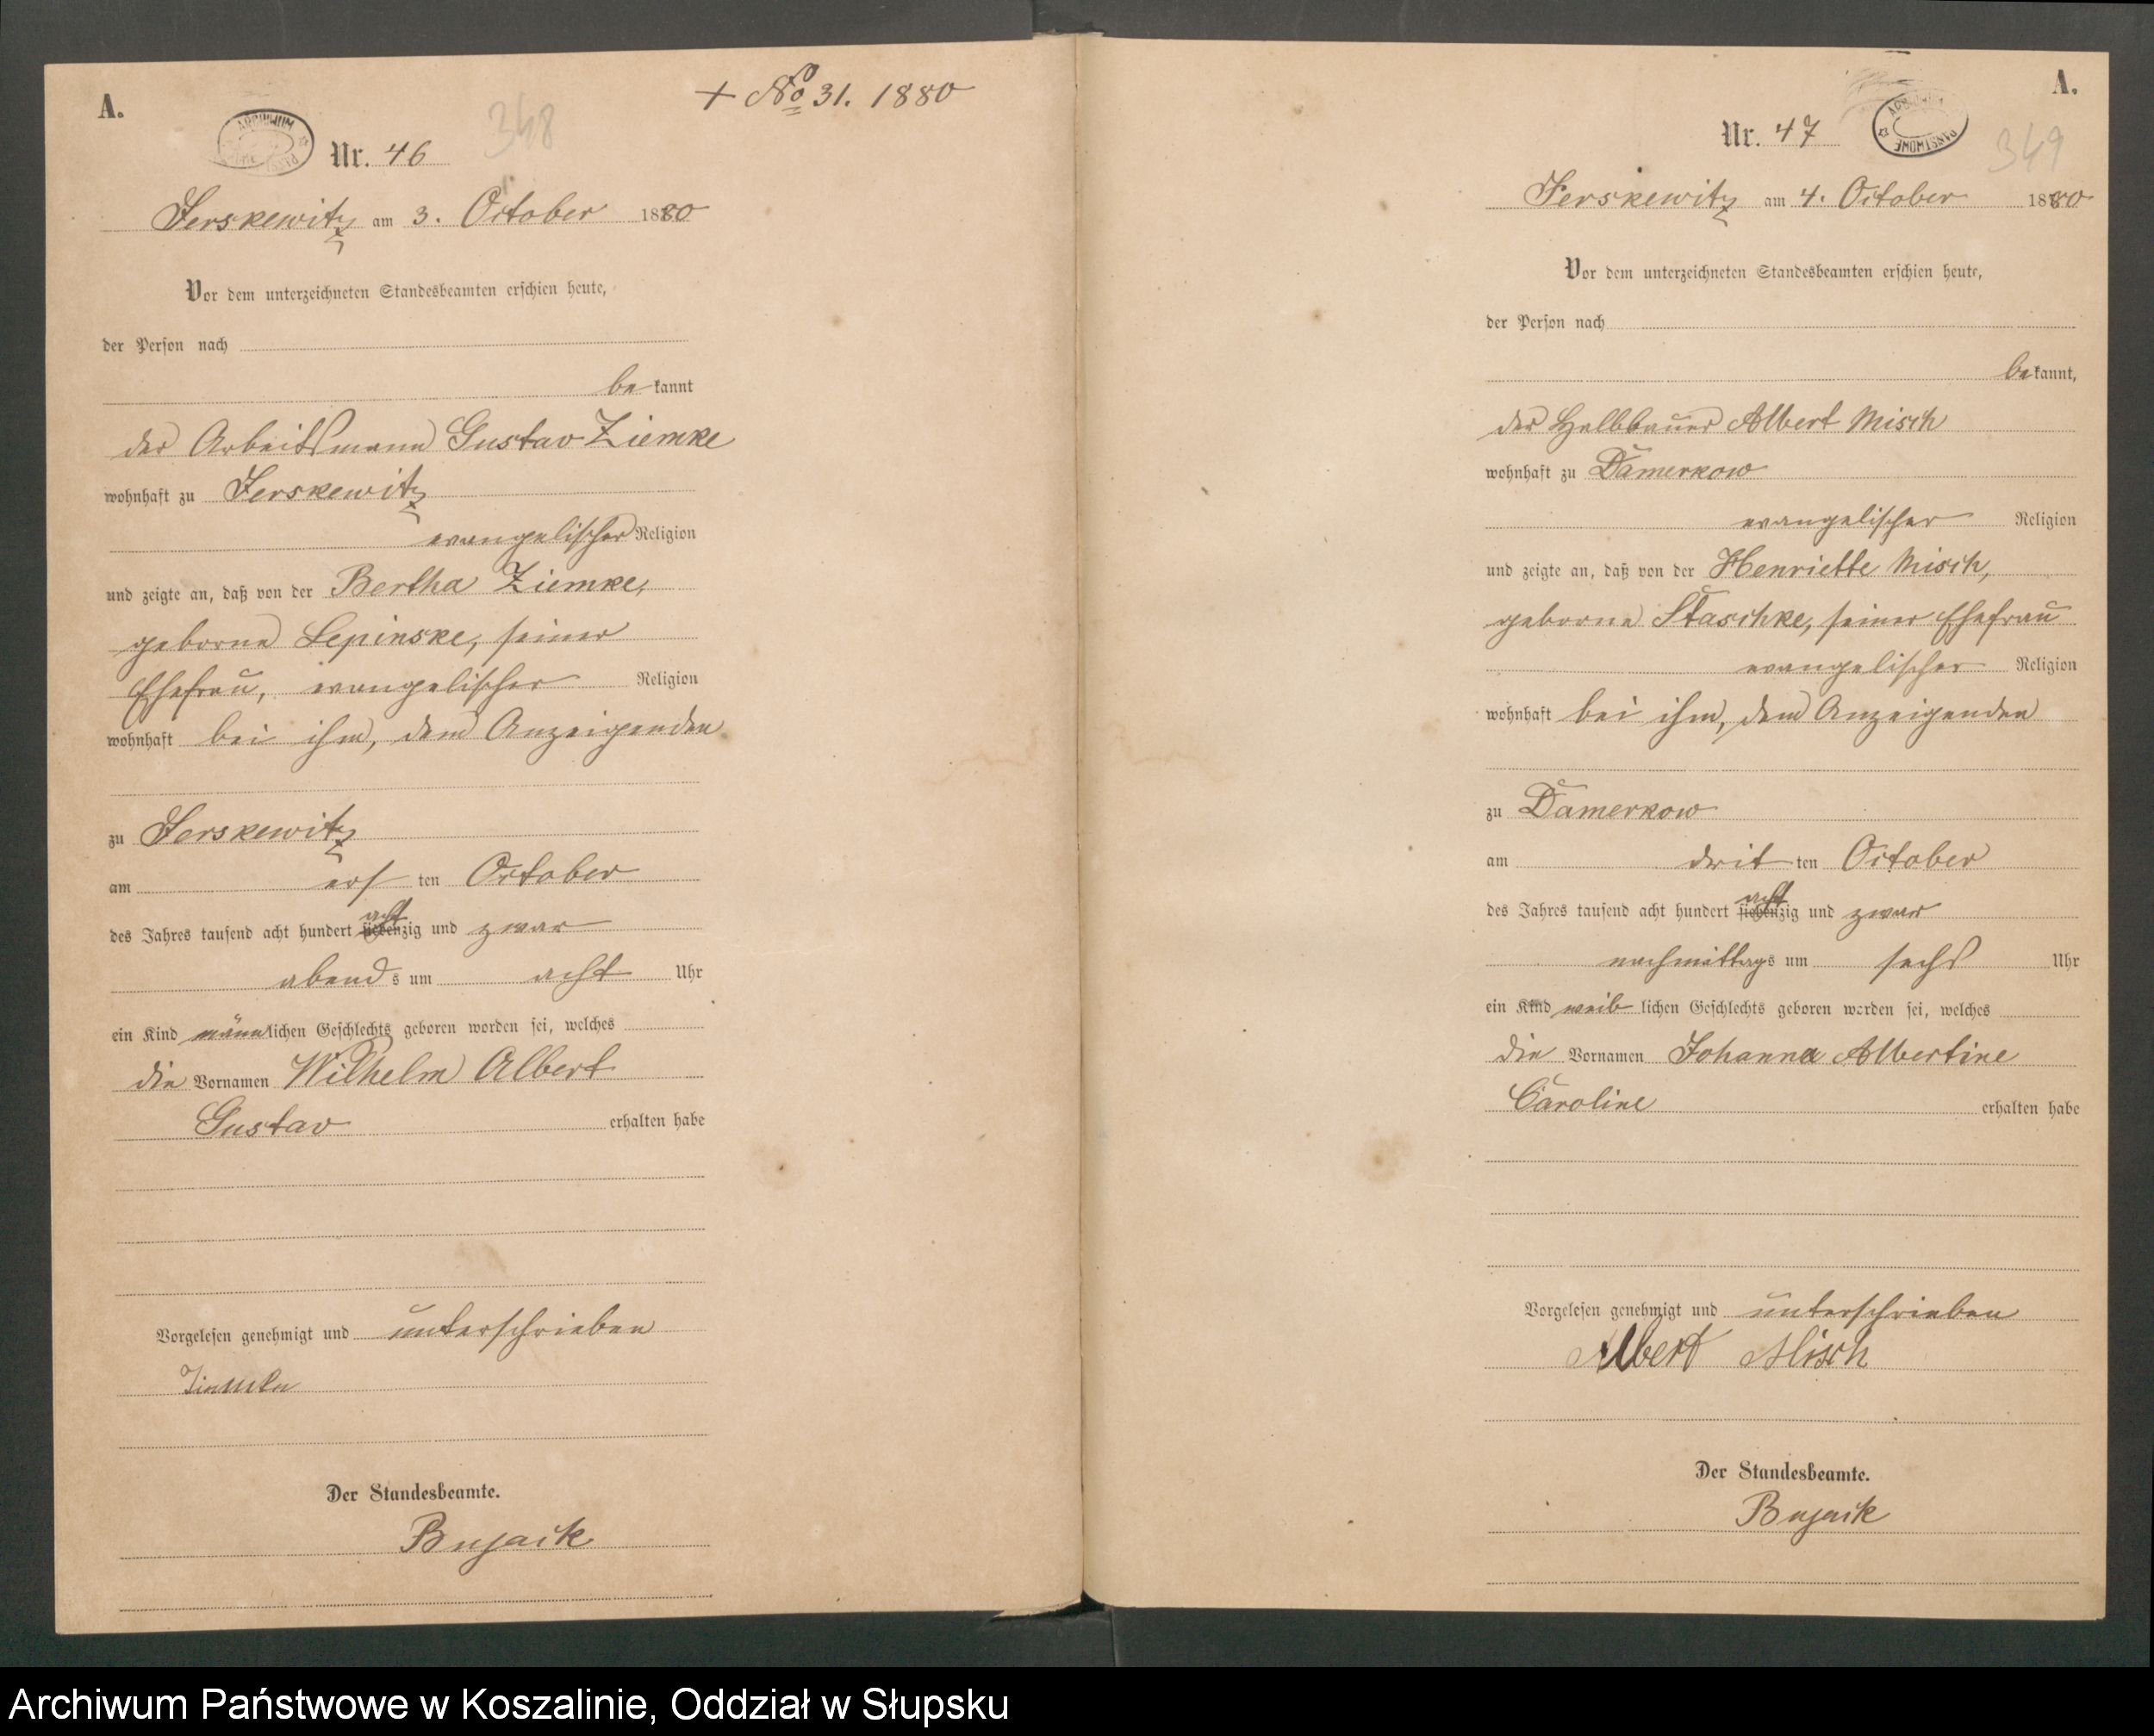 A.
+ No 31. 1880
ARCHIWUM PAŃSTWOWE
Nr. 46
348
Jerskewitz am 3. October 1880
Vor dem unterzeichneten Standesbeamten erschien heute,
der Person nach
be kannt
der Arbeitsmann Gustav Ziemke
wohnhaft zu Jerskewitz
evangelischer Religion
und zeigte an, daß von der Bertha Ziemke,
geborne Lepinske, seiner
Ehefrau, evangelischer Religion
wohnhaft bei ihm, dem Anzeigenden
zu Jerskewitz
am ers ten October
des Jahres tausend acht hundert siebenzig acht und zwar
abend s um acht Uhr
ein Kind männlichen Geschlechts geboren worden sei, welches
die Vornamen Wilhelm Albert
Gustav erhalten habe
Vorgelesen genehmigt und unterschrieben
Ziemke
Der Standesbeamte.
Bujack
A.
ARCHIWUM PAŃSTWOWE
Nr. 47
349
Jerskewitz am 4. October 1880
Vor dem unterzeichneten Standesbeamten erschien heute,
der Person nach
bekannt,
der Halbbauer Albert Misch
wohnhaft zu Damerkow
evangelischer Religion
und zeigte an, daß von der Henriette Misch,
geborne Staschke, seiner Ehefrau
evangelischer Religion
wohnhaft bei ihm, dem Anzeigenden
zu Damerkow
am drit ten October
des Jahres tausend acht hundert siebenzig acht und zwar
nachmittags um sechs Uhr
ein Kind weib lichen Geschlechts geboren worden sei, welches
die Vornamen Johanna Albertine
Caroline erhalten habe
Vorgelesen genehmigt und unterschrieben
Albert Misch
Der Standesbeamte.
Bujack
Archiwum Państwowe w Koszalinie, Oddział w Słupsku